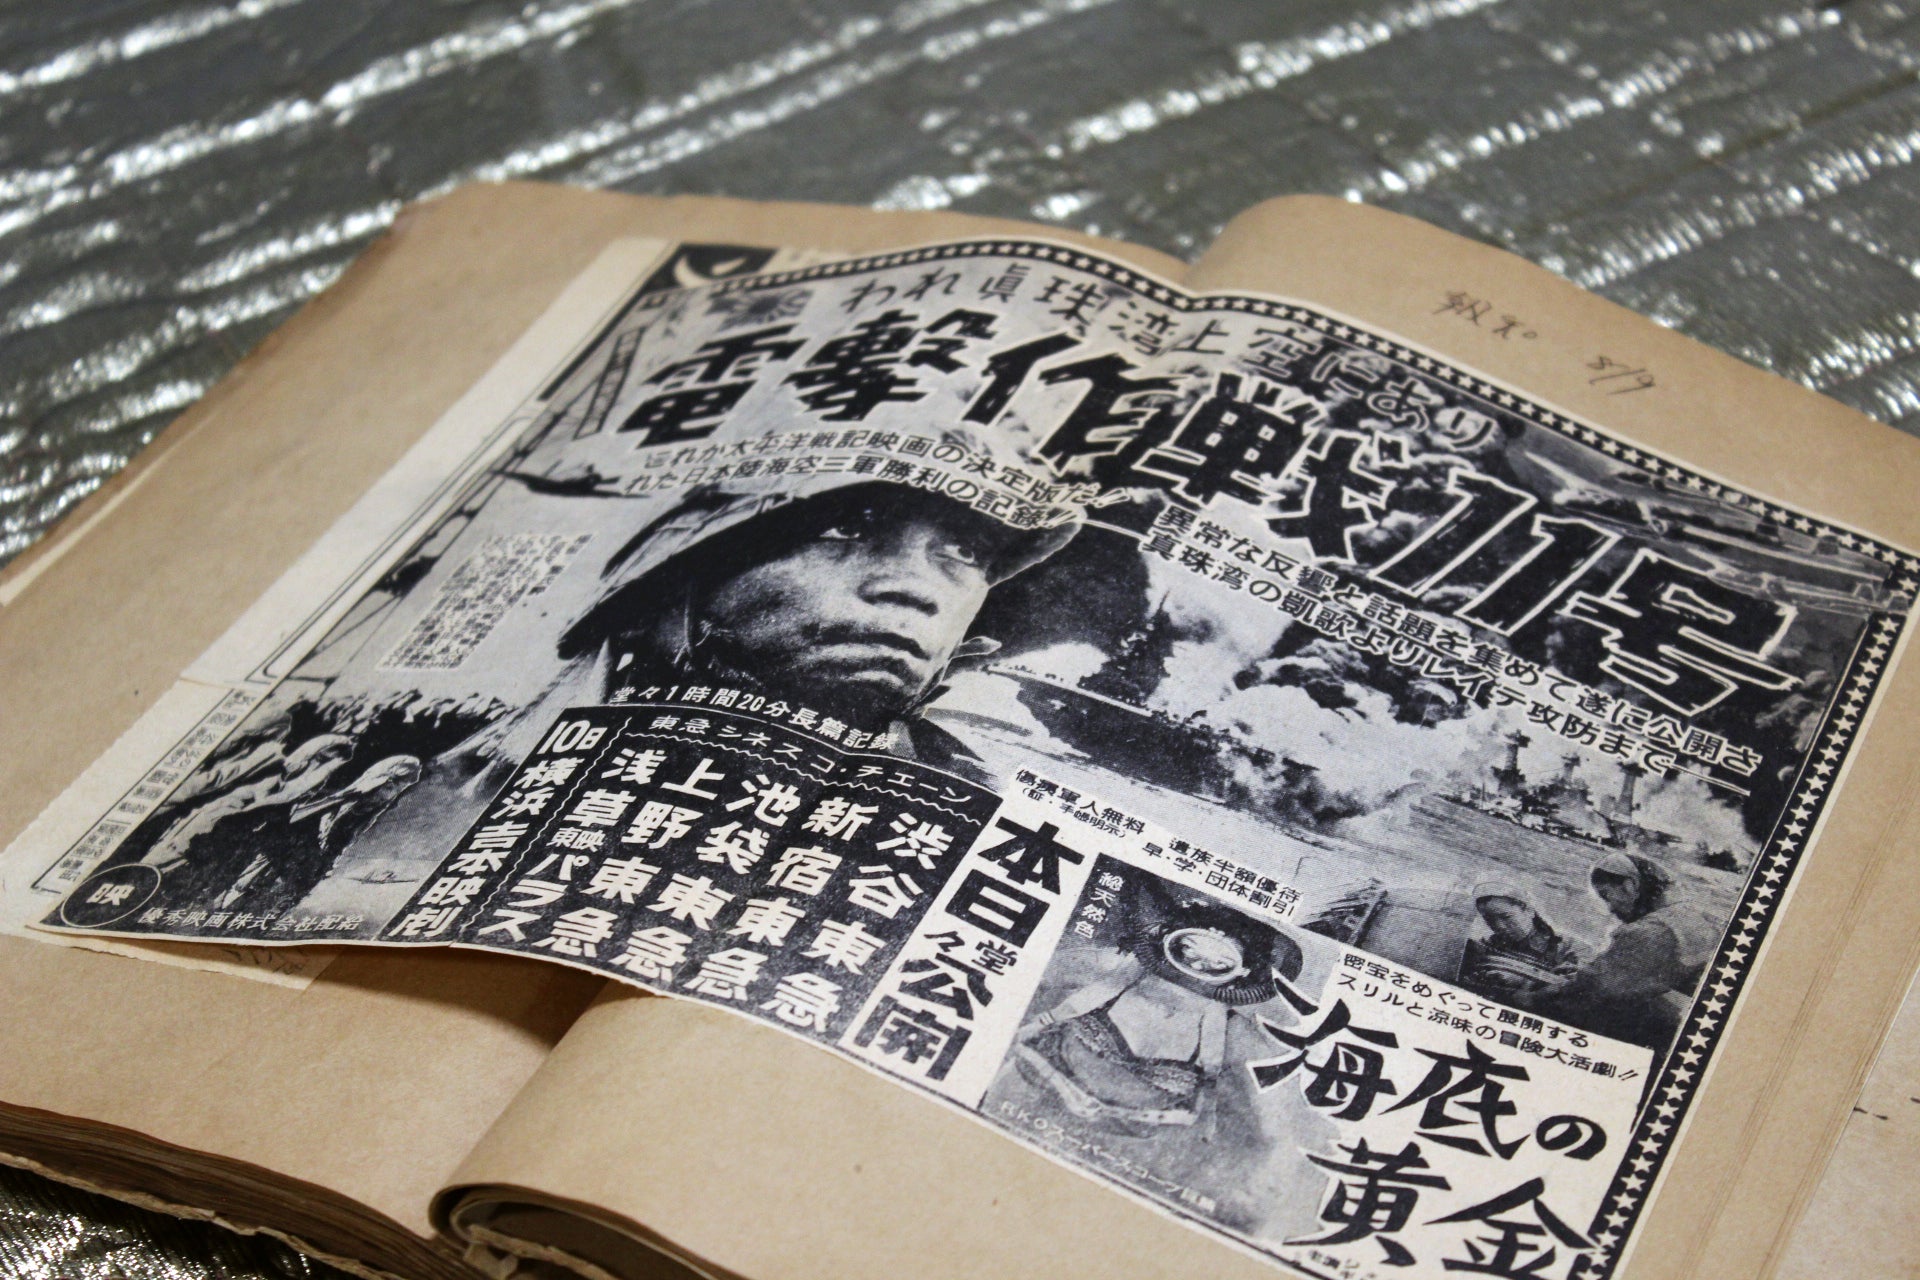 われ眞珠湾上空にあり
電撃作戦11号
これが太平洋戦記映画の決定版だ!!
異常な反響と話題を集めて遂に公開さ
れた日本陸海空三軍勝利の記録!!
真珠湾の凱歌よりレイテ攻防まで――
堂々1時間20分長篇記録
東急シネスコ・チエーン
渋谷東急
新宿東急
池袋東急
上野東急
浅草東映パラス
10日横浜吉本映劇
本日堂々公開
傷痍軍人無料
(証・手帳明示)
遺族半額優待
早・学・団体割引
映
優秀映画株式会社配給
総天然色
密宝をめぐって展開する
スリルと涼味の冒険大活劇!!
海底の
黄金
RKOスーパースコープ
報知 8/9